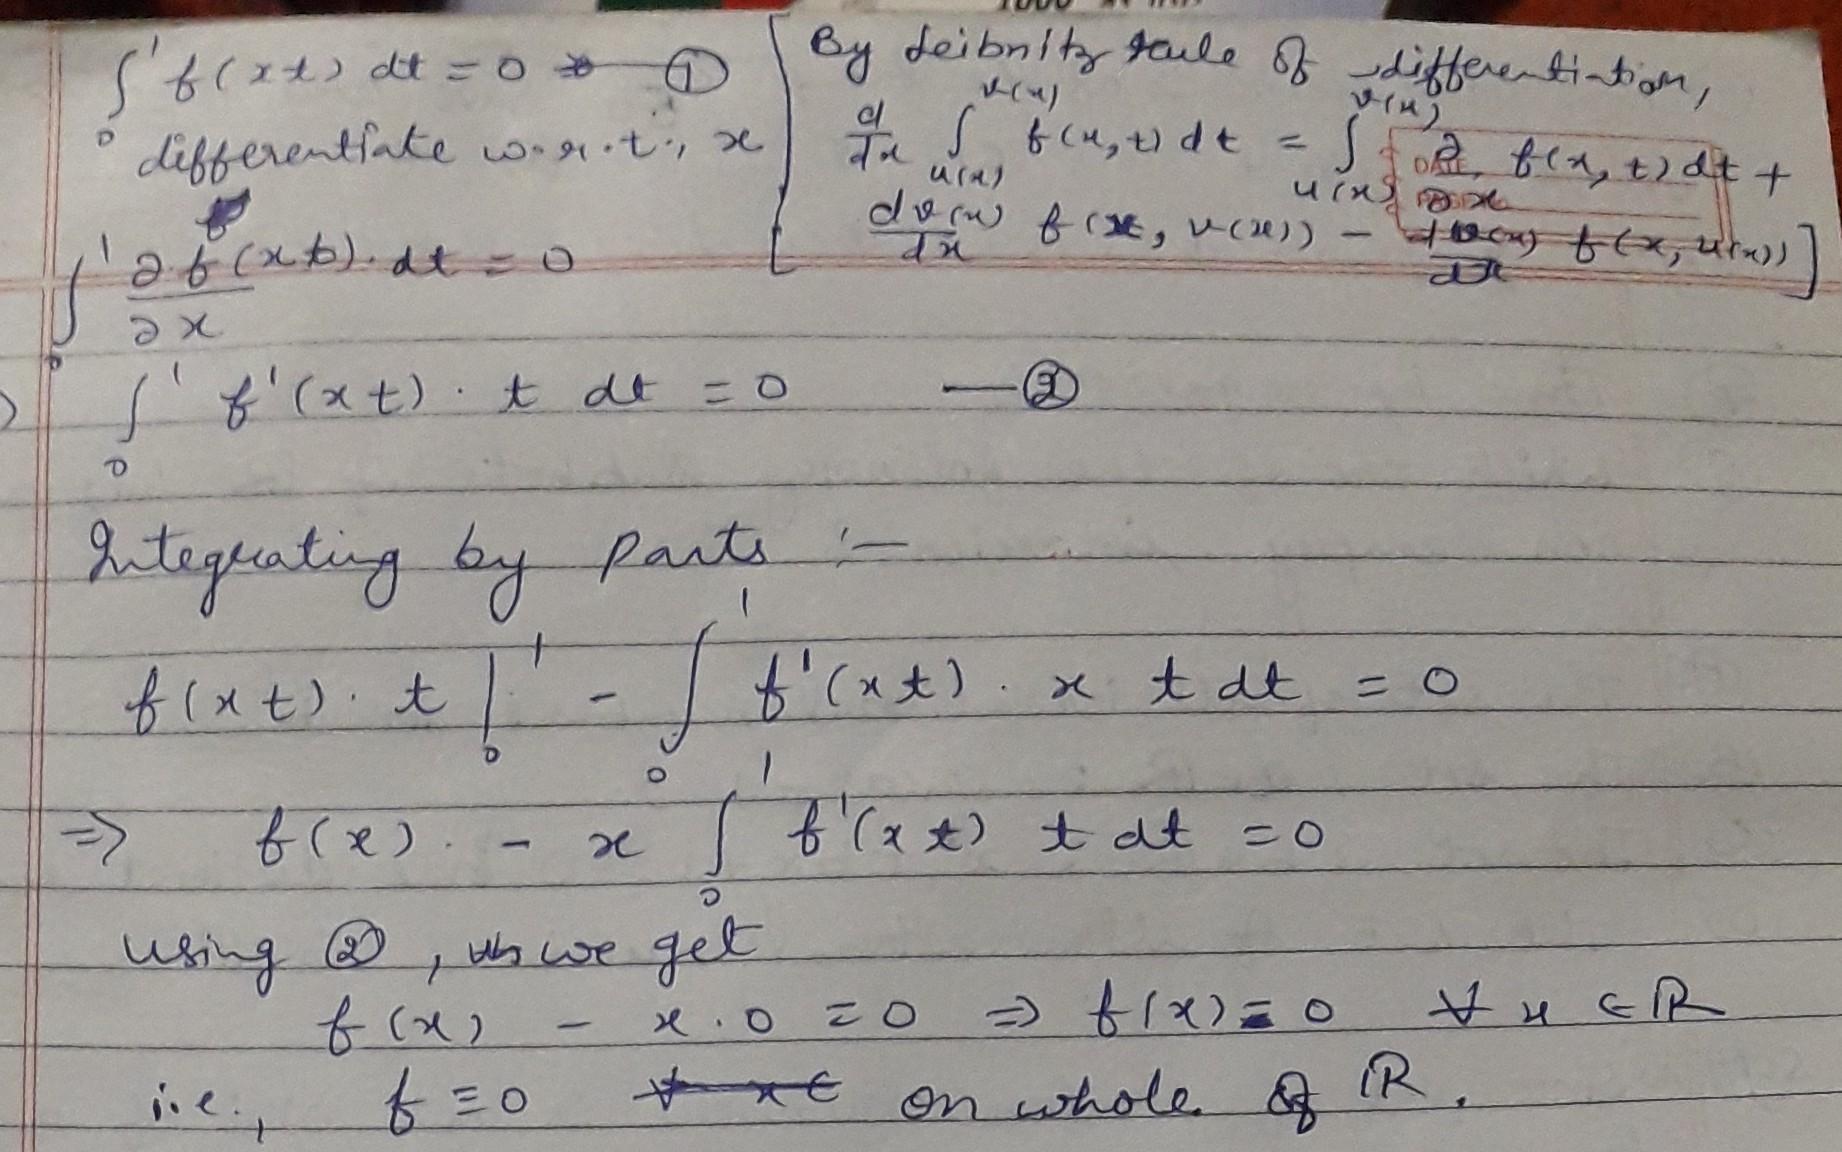 ∫₀¹ f(xt) dt = 0 — ①
differentiate w.r.t., x
∫₀¹ ∂f(xt)/∂x . dt = 0
[By Leibnitz rule of differentiation,
d/dx ∫_{u(x)}^{v(x)} f(x,t) dt = ∫_{u(x)}^{v(x)} ∂/∂x f(x,t) dt +
dv(x)/dx f(x, v(x)) - du(x)/dx f(x, u(x))]
∫₀¹ f'(xt) . t dt = 0 — ②
Integrating by parts :-
f(xt) . t |₀¹ - ∫₀¹ f'(xt) . x t dt = 0
⇒ f(x) . - x ∫₀¹ f'(xt) t dt = 0
using ②, we get
f(x) - x . 0 = 0 ⇒ f(x) = 0 ∀ x ∈ ℝ
i.e., f ≡ 0 on whole of ℝ.